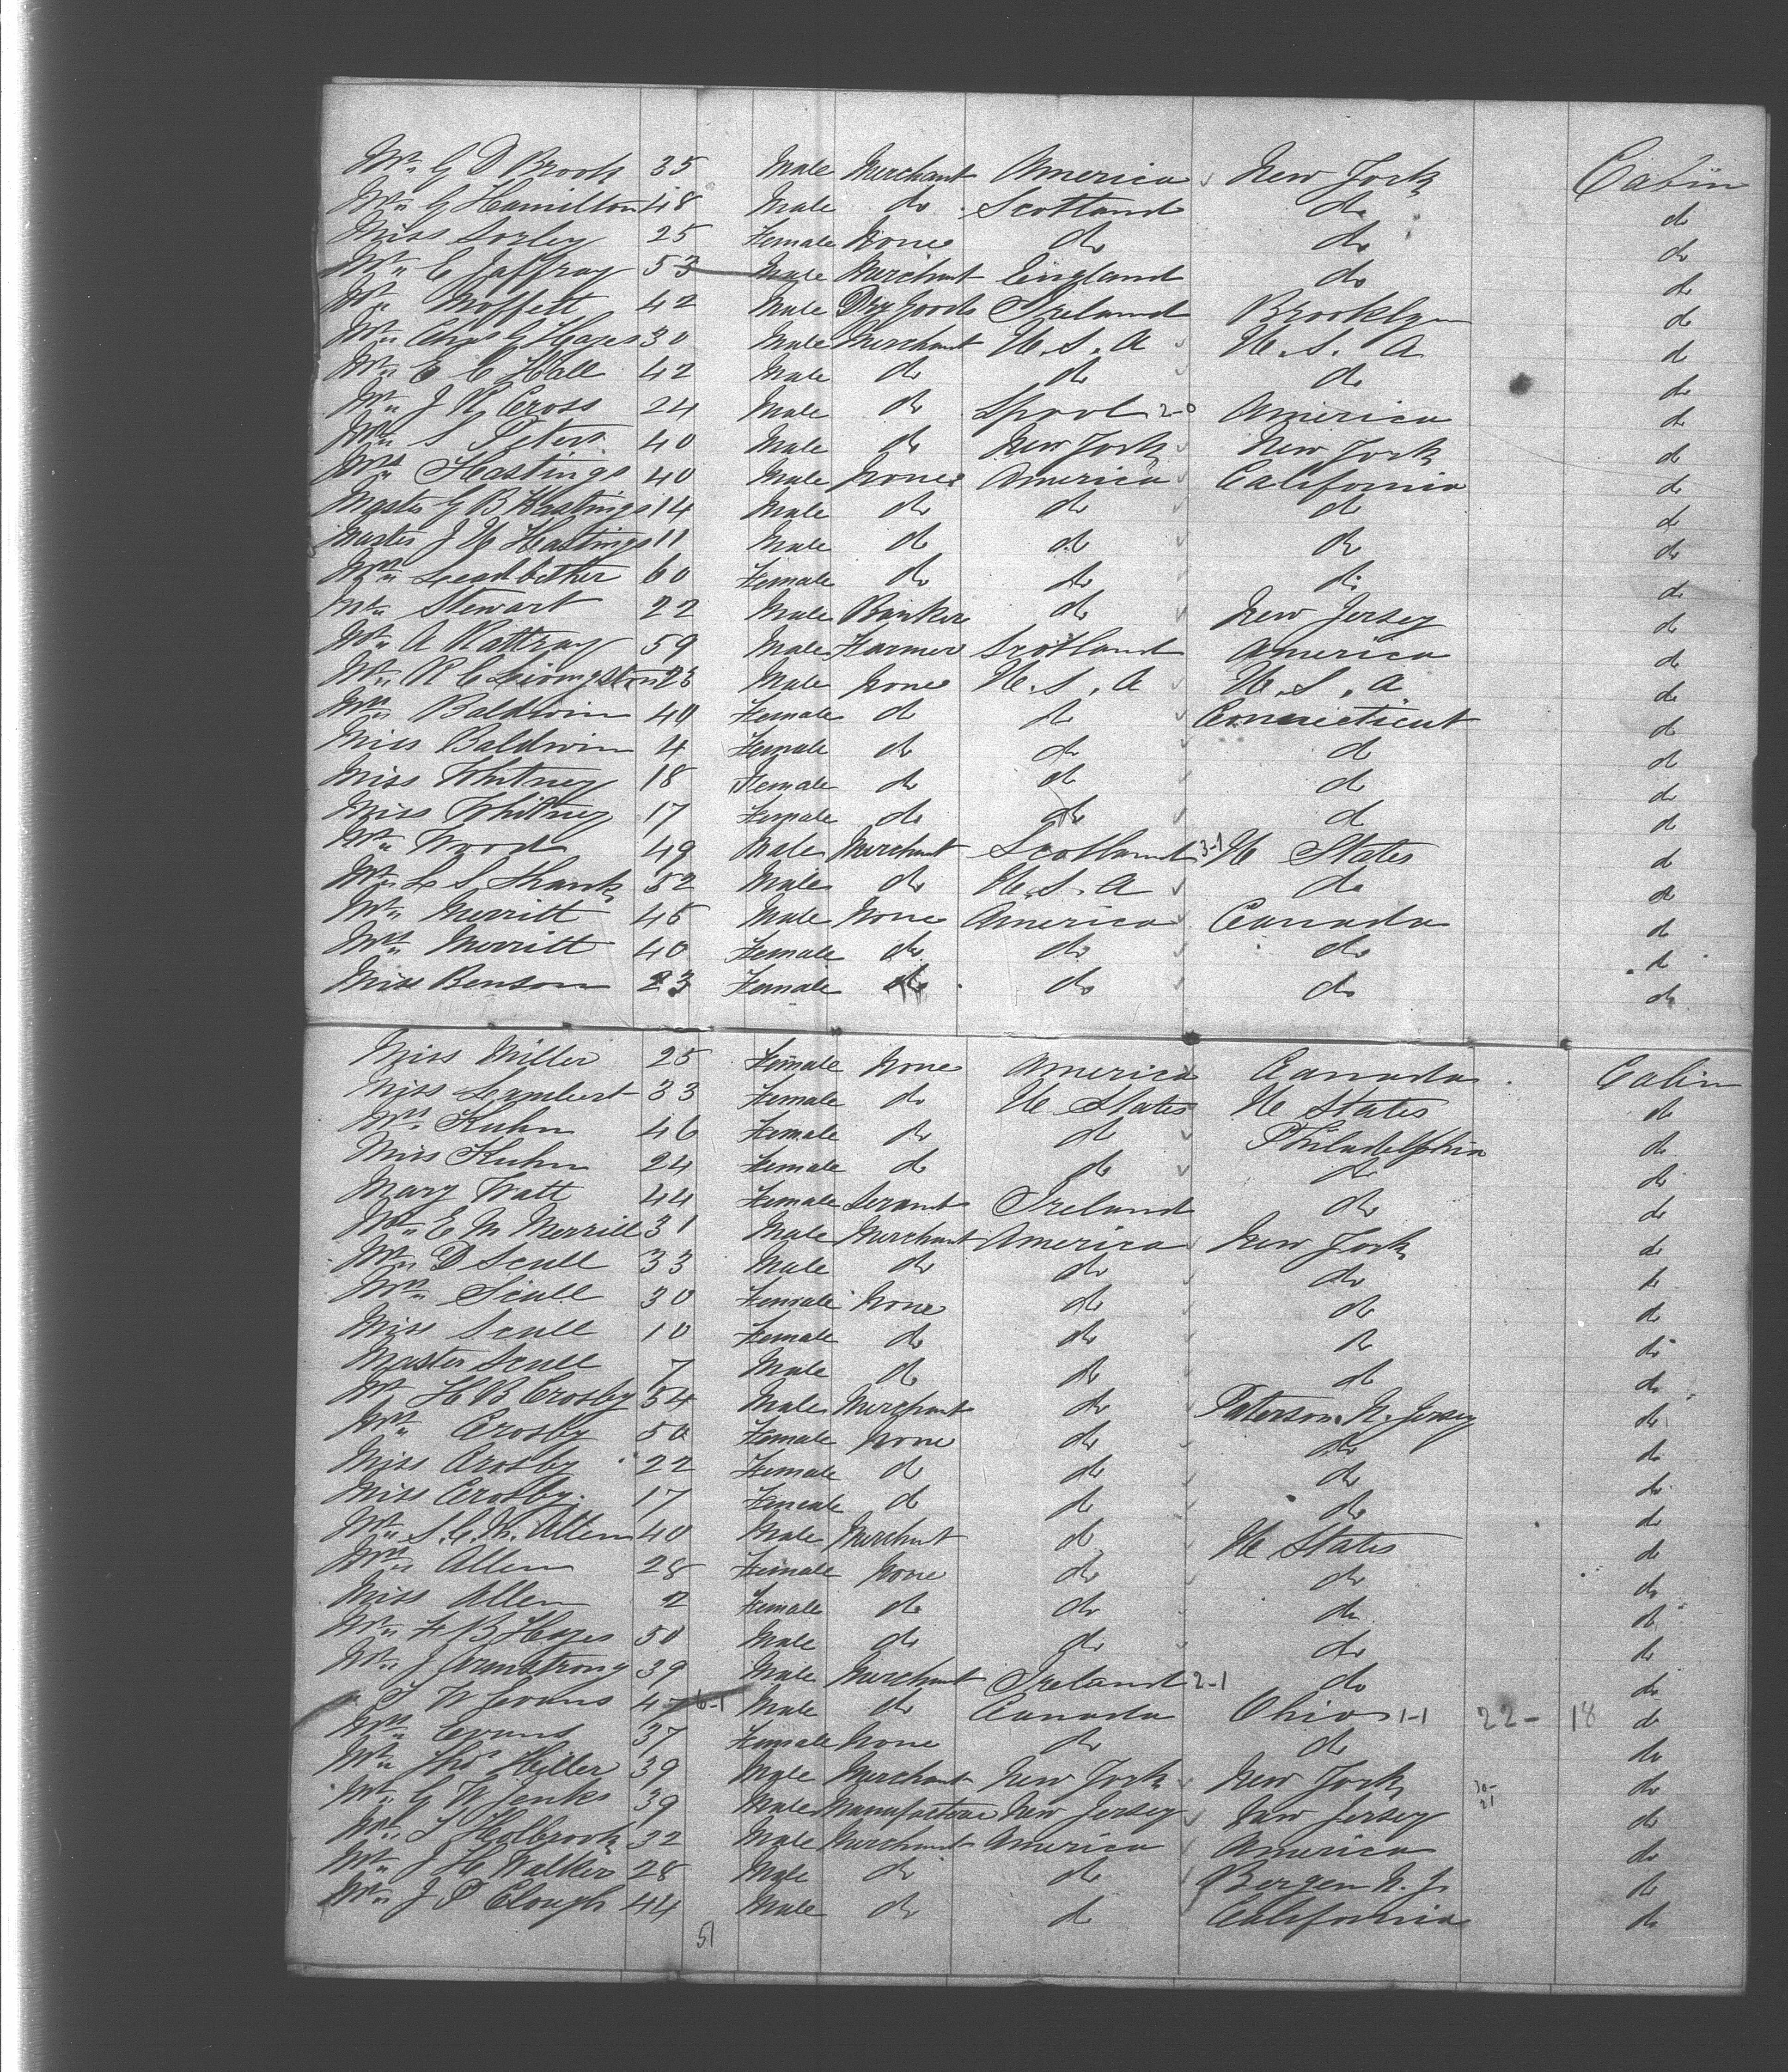 Mr. G D Brook 35 Male Merchant America New York Cabin
Mr. G Hamilton 48 Male do Scotland do do
Miss Sorley 25 Female None do do do
Mr. E Jaffray 53 Male Merchant England do do
Mr. Moffett 42 Male Dry Goods Ireland Brooklyn do
Mr. Chas G Hayes 30 Male Merchant U. S. A U. S. A do
Mr. E C Hall 42 Male do do do do
Mr. J R Cross 24 Male do Lpool 2-0 America do
Mr. S Peters 40 Male do New York New York do
Mr. Hastings 40 Male None America California do
Master G B Hastings 14 Male do do do do
Master J U Hastings 11 Male do do do do
Mrs. Leadbether 60 Female do do do do
Mr. Stewart 22 Male Banker do New Jersey do
Mr. A Rattray 59 Male Farmer Scotland America do
Mr. R C Livingston 23 Male None U. S. A U. S. A do
Mrs. Baldwin 40 Female do do Connecticut do
Miss Baldwin 4 Female do do do do
Miss Whitney 18 Female do do do do
Miss Whitney 17 Female do do do do
Mr. Wood 49 Male Merchant Scotland 3-1 U States do
Mr. L S Shank 52 Male do U. S. A do do
Mr. Merritt 45 Male None America Canada do
Mrs. Merritt 40 Female do do do do
Miss Benson 23 Female do do do do
Miss Miller 25 Female None America Canada Cabin
Miss Lambert 33 Female do U States U States do
Mrs. Kuhn 46 Female do do Philadelphia do
Miss Kuhn 24 Female do do do do
Mary Watt 44 Female Servant Ireland do do
Mr. E M Merrill 31 Male Merchant America New York do
Mr. D Scull 33 Male do do do do
Mrs. Scull 30 Female None do do do
Miss Scull 10 Female do do do do
Master Scull 7 Male do do do do
Mr. H B Crosby 54 Male Merchant do Paterson N. Jersey do
Mrs. Crosby 50 Female None do do do
Miss Crosby 22 Female do do do do
Miss Crosby 17 Female do do do do
Mr. S. C. Allen 40 Male Merchant do U States do
Mrs. Allen 28 Female None do do do
Miss Allen 2 Female do do do do
Mr. F B Hayes 50 Male do do do do
Mr. J Armstrong 39 Male Merchant Ireland 2-1 do do
T W Evans 47 6-1 Male do Canada Ohio 1-1 22- 18 do
Mrs. Evans 37 Female None do do do
Mr. Thos Hiller 39 Male Merchant New York New York do
Mr. G W Jenks 39 Male Manufacturer New Jersey New Jersey do
Mr. T Holbrook 32 Male Merchant America America do
Mr. J H Walker 28 Male do do Bergen N. J. do
Mr. J P Clough 44 Male do do California do
51